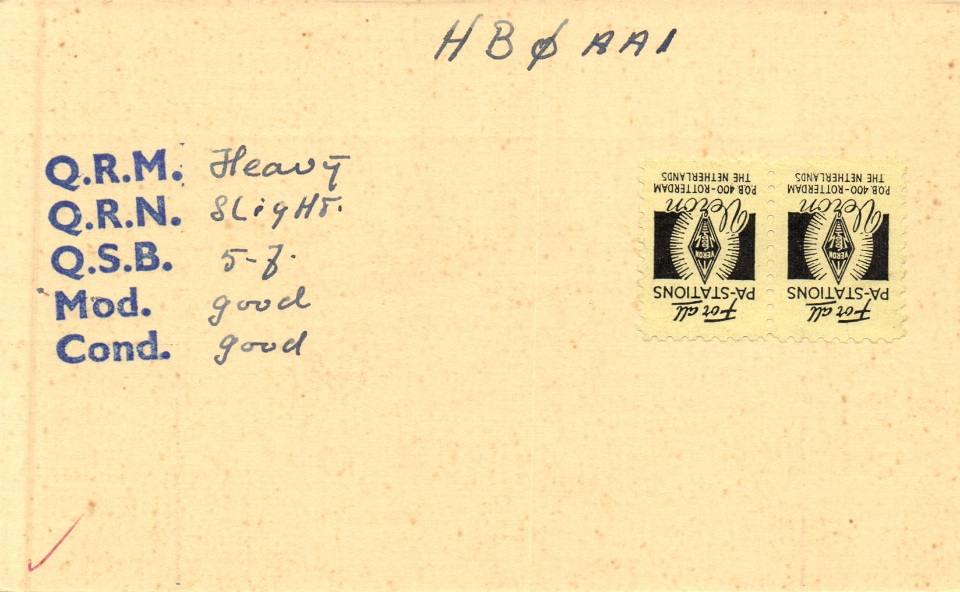 HBØAAI
Q.R.M. Heavy
Q.R.N. Slight.
Q.S.B. 5-7.
Mod. good
Cond. good
For all
PA-STATIONS
VERON
Veron
P.O.B. 400-ROTTERDAM
THE NETHERLANDS
For all
PA-STATIONS
VERON
Veron
P.O.B. 400-ROTTERDAM
THE NETHERLANDS